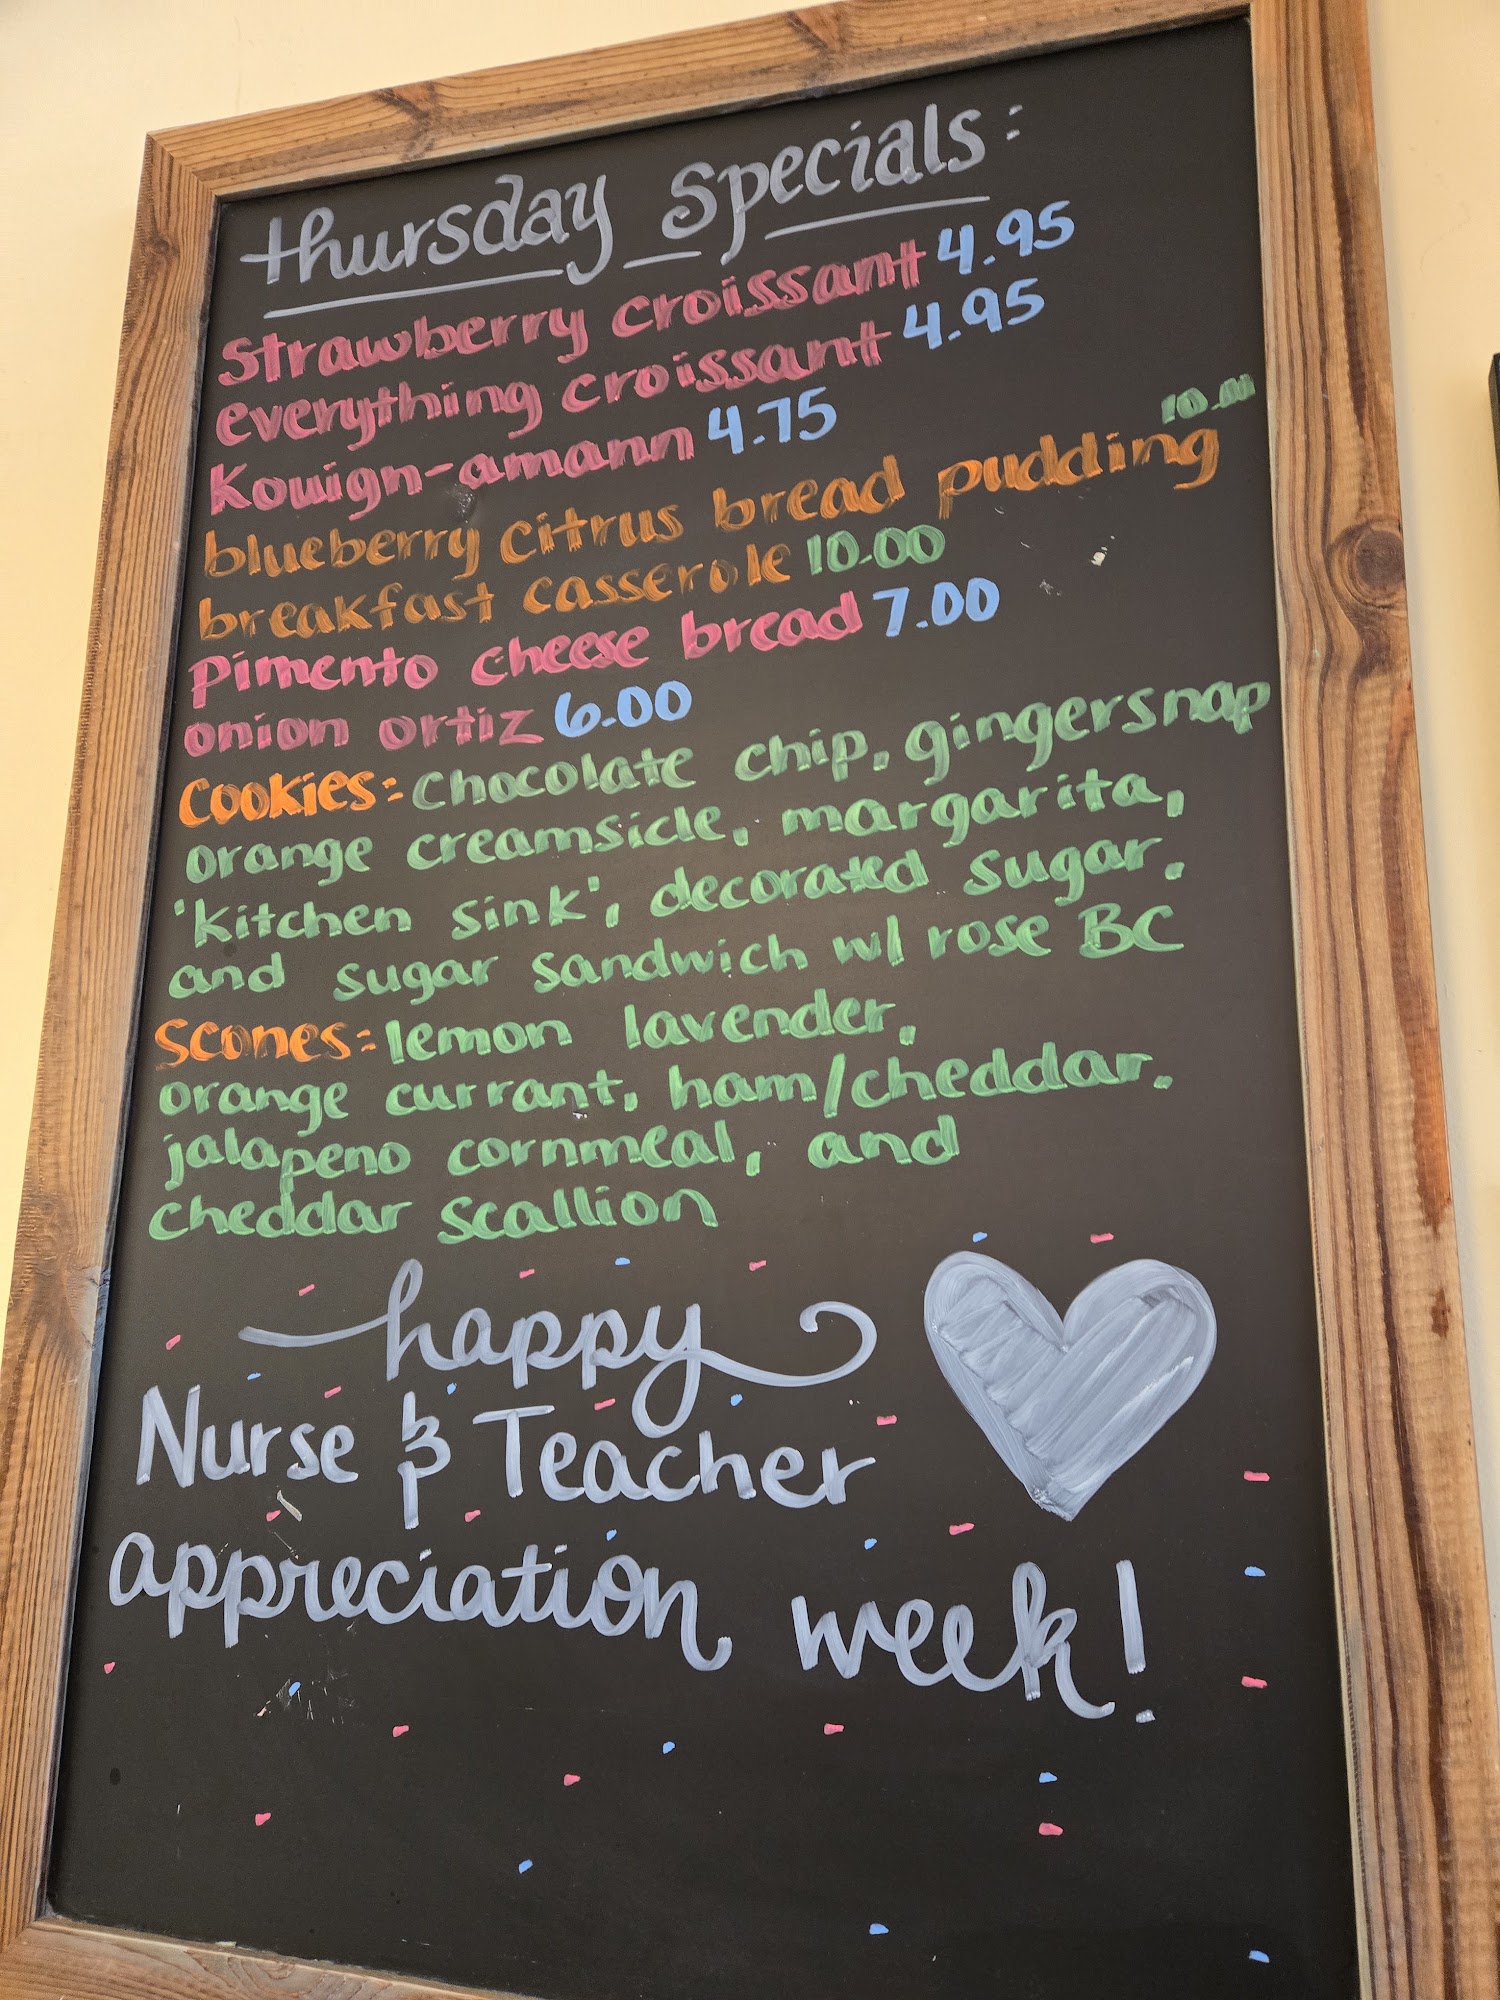 thursday specials:
Strawberry croissant 4.95
everything croissant 4.95
Kouign-amann 4.75
blueberry citrus bread pudding 10.00
breakfast casserole 10.00
pimento cheese bread 7.00
onion ortiz 6.00
Cookies: chocolate chip, gingersnap
orange creamsicle, margarita,
'kitchen sink', decorated sugar,
and sugar sandwich w/ rose BC
Scones: lemon lavender,
orange currant, ham/cheddar,
jalapeno cornmeal, and
cheddar scallion
happy
Nurse & Teacher
appreciation week!